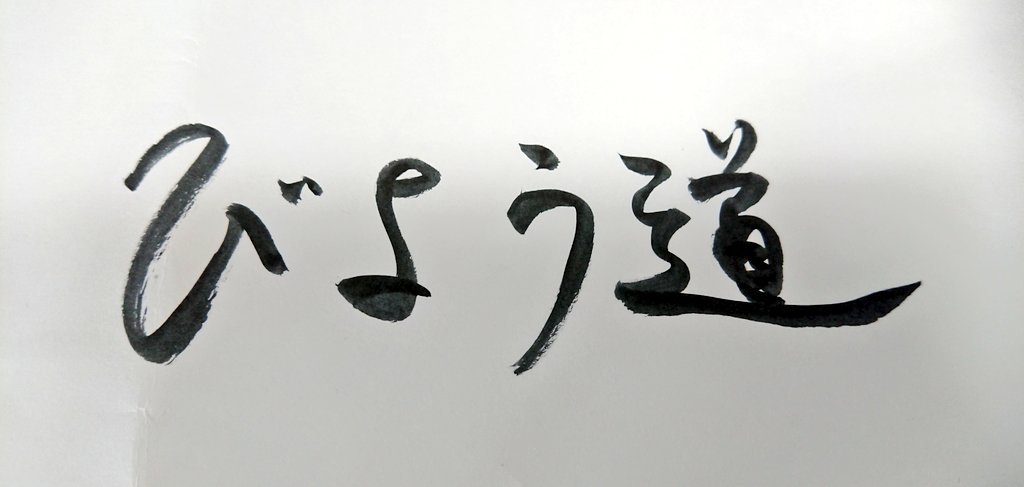 びよう道